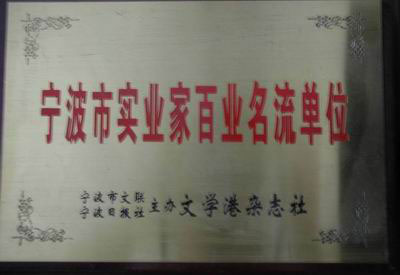 宁波市实业家百业名流单位
宁波市文联
宁波日报社 主办 文学港杂志社